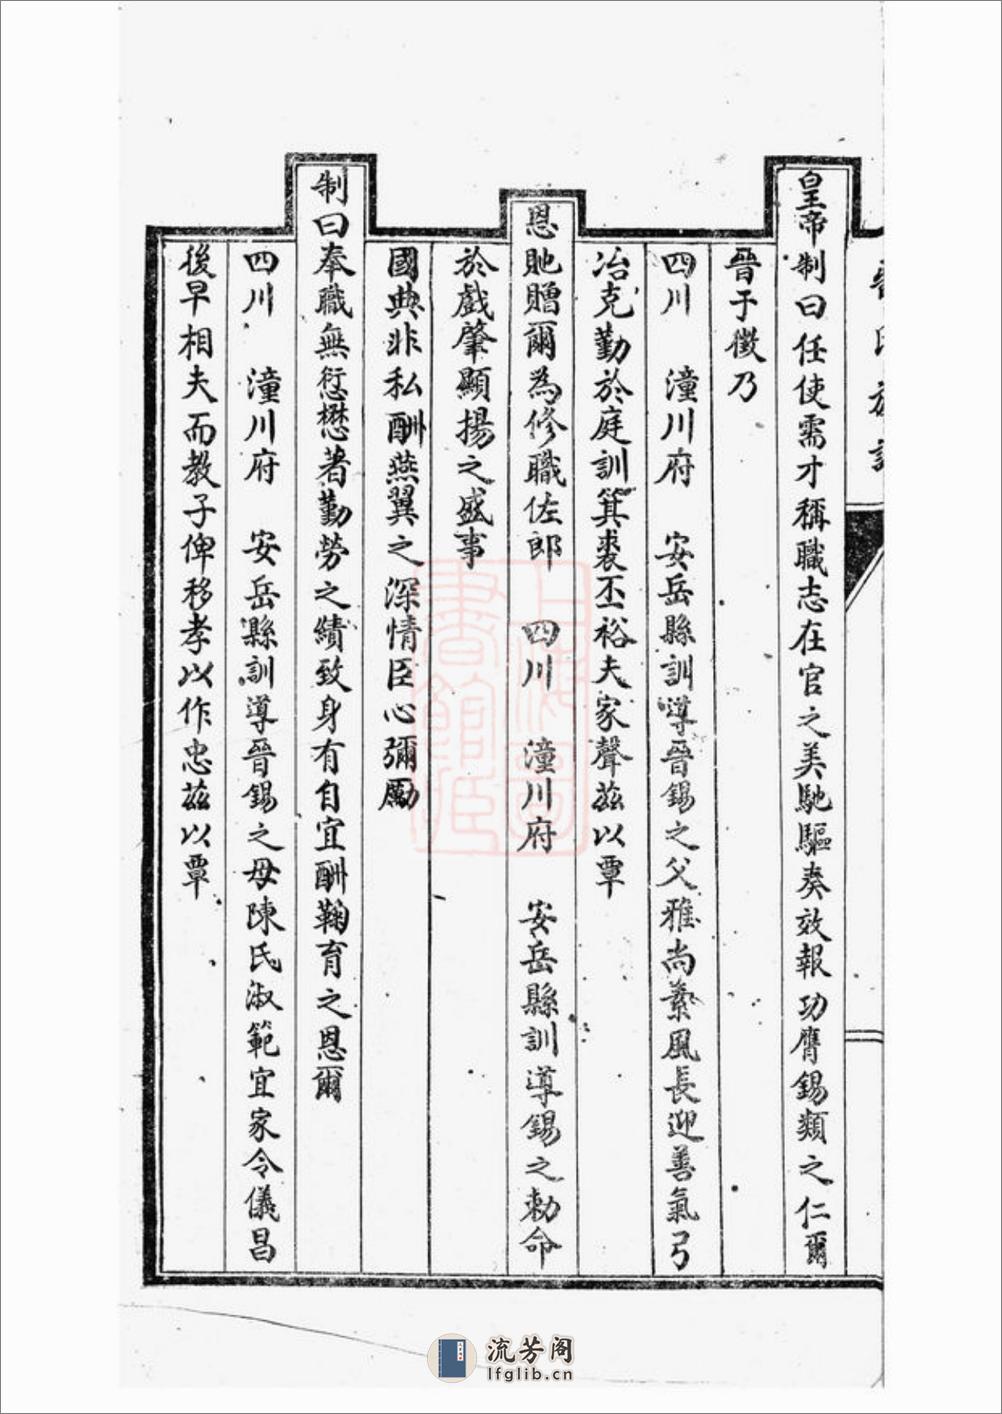 皇帝制曰任使需才稱職志在官之美馳驅奏效報功膺錫類之仁爾
晉于徵乃
四川 潼川府 安岳縣訓導晉錫之父雅尚素風長迎善氣弓
冶克勤於庭訓箕裘丕裕夫家聲茲以覃
恩貤贈爾為修職佐郎 四川 潼川府 安岳縣訓導錫之勅命
於戲肇顯揚之盛事
國典非私酬燕翼之深情臣心彌勵
制曰奉職無愆懋著勤勞之績致身有自宜酬鞠育之恩爾
四川 潼川府 安岳縣訓導晉錫之母陳氏淑範宜家令儀昌
後早相夫而教子俾移孝以作忠茲以覃
上海圖書館藏
流芳阁
lfglib.cn